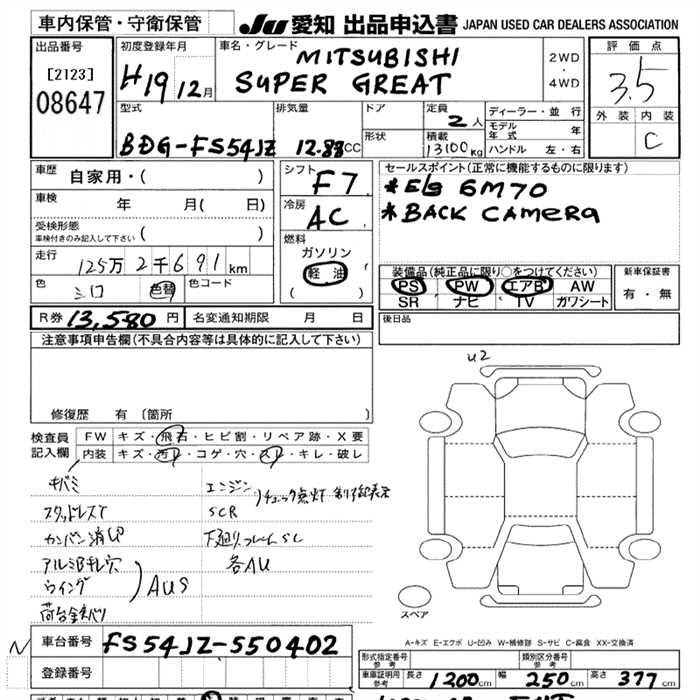 車内保管・守衛保管
JU 愛知 出品申込書 JAPAN USED CAR DEALERS ASSOCIATION
出品番号
[2123]
08647
初度登録年月
H19 12月
車名・グレード
MITSUBISHI
SUPER GREAT
2WD
・
4WD
評価点
3.5
外装 内装
C
型式
BDG-FS54JZ
排気量
12.88CC
ドア
形状
定員
2人
積載
13100kg
ディーラー・並行
モデル年式 年
ハンドル 左・右
車歴
自家用・( )
車検
年 月( 日)
受検形態
車検付きのみ記入して下さい ( )
走行
125万2千691km
色
シロ
色替
色コード
シフト
F7
冷房
AC
燃料
ガソリン
軽油
( )
セールスポイント(正常に機能するものに限ります)
*E/g 6M70
*BACK CAMERA
装備品(純正品に限り○をつけてください)
PS PW エアB AW
SR ナビ TV ガワシート
新車保証書
有・無
R券 13,580円
名変通知期限 月 日
後日品
注意事項申告欄(不具合内容等は具体的に記入して下さい)
修復歴 有〔箇所 〕
検査員
記入欄
FW キズ・飛石・ヒビ割・リペア跡・X要
内装 キズ・汚レ・コゲ・穴・スレ・キレ・破レ
キバミ
スタッドレスT
カンバン消し口
アルミBキレ穴
ウイング
AUS
エンジン
SCR
チェック点灯 制限表示
下廻りフレームSC
各AU
U2
スペア
A-キズ E-エクボ U-凹み W-補修跡 S-サビ C-腐食 XX-交換済
N
車台番号
FS54JZ-550402
登録番号
形式指定番号
参考
類別区分番号
参考
車庫証明用
参考
長さ 1200cm
幅 250cm
高さ 377cm